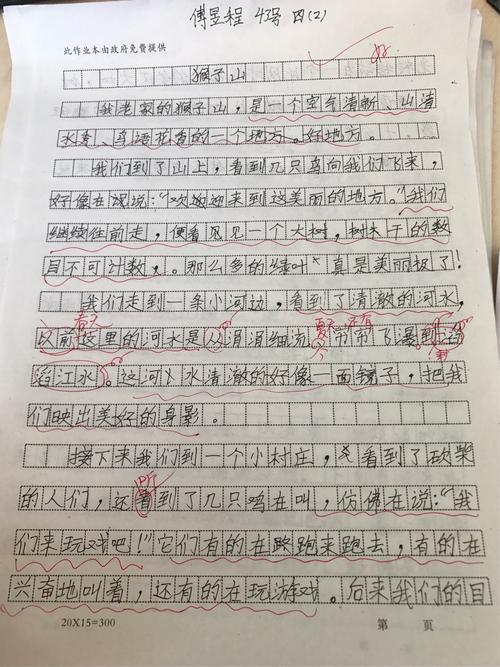 傅昱程 43号 四(2)
此作业本由政府免费提供
好
猴子山
我老家的猴子山，是一个空气清新、山清
水秀、鸟语花香的一个地方。好地方。
我们到了山上，看到几只鸟向我们飞来，
好像在说说："欢迎迎来到这美丽的地方。"我们
继续往前走，便看见见一个大树，树木干的数
目不可计数，。那么多的绿叶真是美丽极了！
我们走到一条小河边，看到了清澈的河水，
春天 夏天 还有
以前这里的河水是从涓涓细流，今爷爷飞瀑到滔
滔江水。这河水清澈的好像一面镜子，把我
们映出美好的身影。
接下来我们到一个小村庄，看到了砍柴
听
的人们，还看到了几只鸡在叫，仿佛在说："我
们来玩戏吧！"它们有的在跑来跑去，有的在
兴奋地叫着，还有的在玩游戏。后来我们的目
20X15=300
第 页